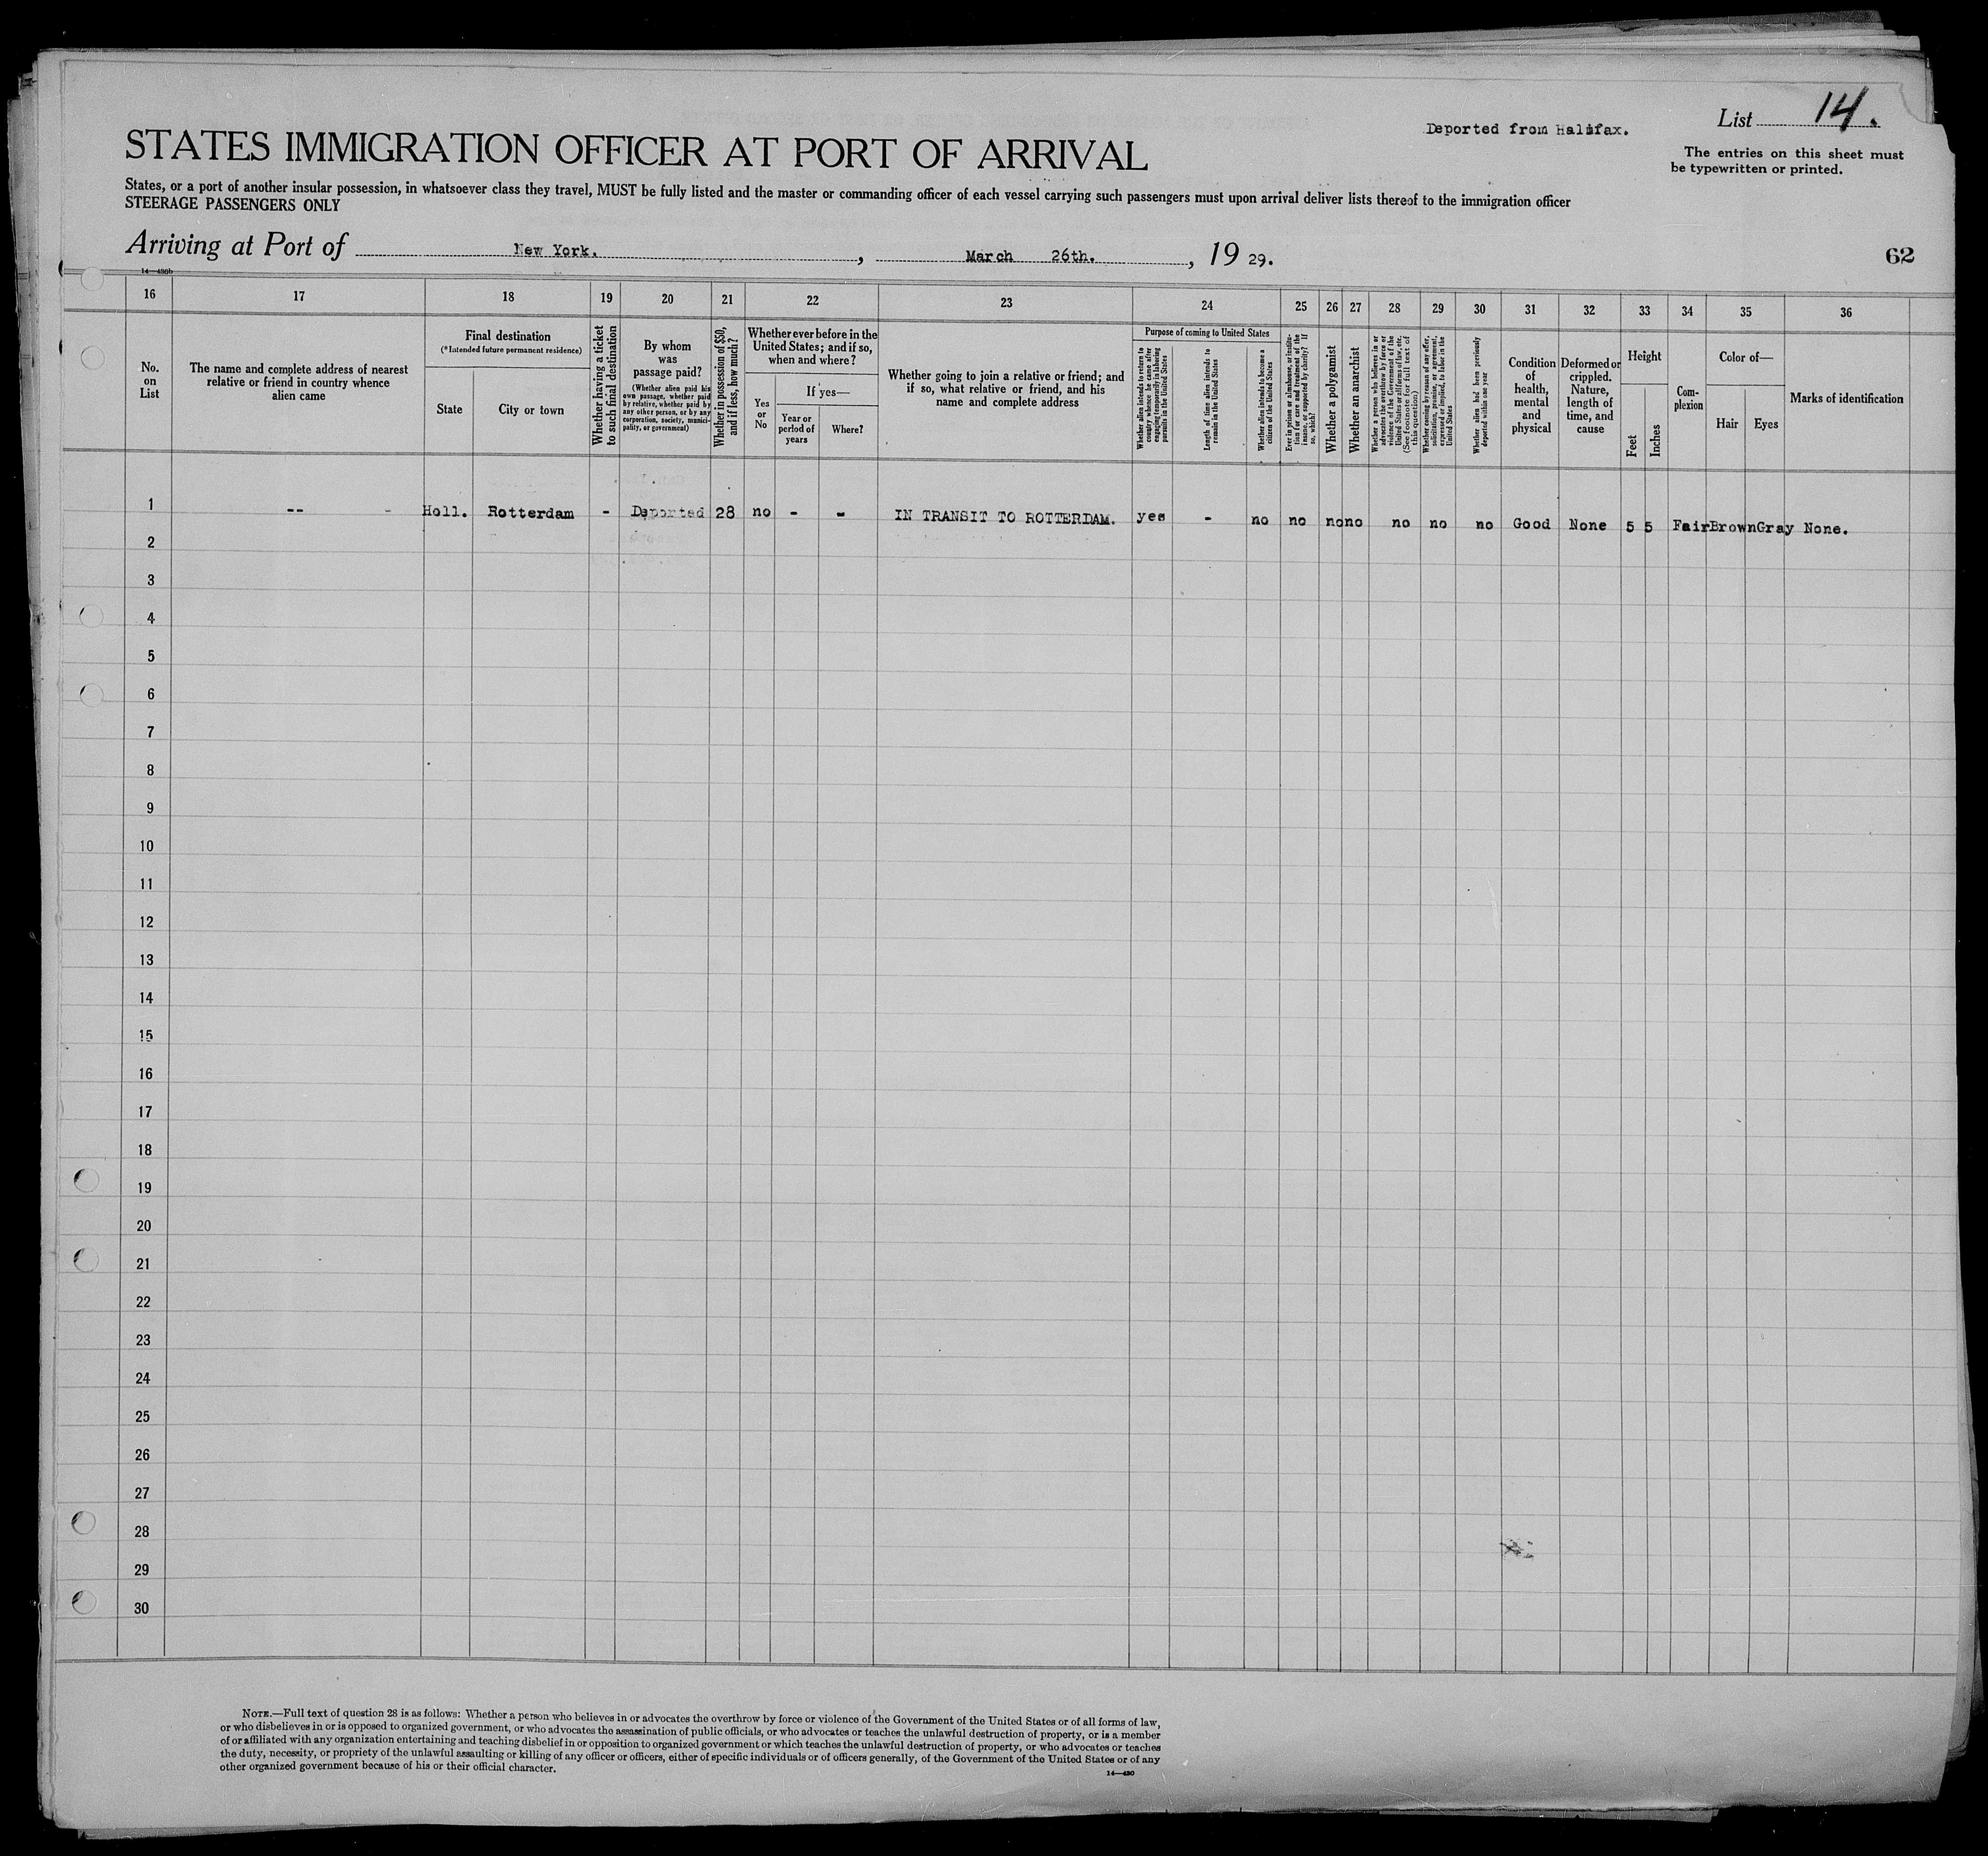 Deported from Halifax.
List 14.
STATES IMMIGRATION OFFICER AT PORT OF ARRIVAL
The entries on this sheet must
be typewritten or printed.
States, or a port of another insular possession, in whatsoever class they travel, MUST be fully listed and the master or commanding officer of each vessel carrying such passengers must upon arrival deliver lists thereof to the immigration officer
STEERAGE PASSENGERS ONLY
Arriving at Port of New York., March 26th., 19 29.
62
14—430b
16 17 18 19 20 21 22 23 24 25 26 27 28 29 30 31 32 33 34 35 36
No.
on
List
The name and complete address of nearest
relative or friend in country whence
alien came
Final destination
(*Intended future permanent residence)
State
City or town
Whether having a ticket
to such final destination
By whom
was
passage paid?
(Whether alien paid his
own passage, whether paid
by relative, whether paid by
any other person, or by any
corporation, society, munici-
pality, or government)
Whether in possession of $50,
and if less, how much?
Whether ever before in the
United States; and if so,
when and where?
Yes
or
No
If yes—
Year or
period of
years
Where?
Whether going to join a relative or friend; and
if so, what relative or friend, and his
name and complete address
Purpose of coming to United States
Whether alien intends to return to
country whence he came after
engaging temporarily in laboring
pursuits in the United States
Length of time alien intends to
remain in the United States
Whether alien intends to become a
citizen of the United States
Ever in prison or almshouse, or institu-
tion for care and treatment of the
insane, or supported by charity? If
so, which?
Whether a polygamist
Whether an anarchist
Whether a person who believes in or
advocates the overthrow by force or
violence of the Government of the
United States or all forms of law, etc.
(See footnote for full text of
this question)
Whether coming by reason of any offer,
solicitation, promise, or agreement,
expressed or implied, to labor in the
United States
Whether alien had been previously
deported within one year
Condition
of
health,
mental
and
physical
Deformed or
crippled.
Nature,
length of
time, and
cause
Height
Feet
Inches
Com-
plexion
Color of—
Hair
Eyes
Marks of identification
1 -- - Holl. Rotterdam - Deported 28 no - - IN TRANSIT TO ROTTERDAM. yes - no no no no no no no Good None 5 5 Fair Brown Gray None.
2
3
4
5
6
7
8
9
10
11
12
13
14
15
16
17
18
19
20
21
22
23
24
25
26
27
28
29
30
NOTE.—Full text of question 28 is as follows: Whether a person who believes in or advocates the overthrow by force or violence of the Government of the United States or of all forms of law,
or who disbelieves in or is opposed to organized government, or who advocates the assassination of public officials, or who advocates or teaches the unlawful destruction of property, or is a member
of or affiliated with any organization entertaining and teaching disbelief in or opposition to organized government or which teaches the unlawful destruction of property, or who advocates or teaches
the duty, necessity, or propriety of the unlawful assaulting or killing of any officer or officers, either of specific individuals or of officers generally, of the Government of the United States or of any
other organized government because of his or their official character.
14—430